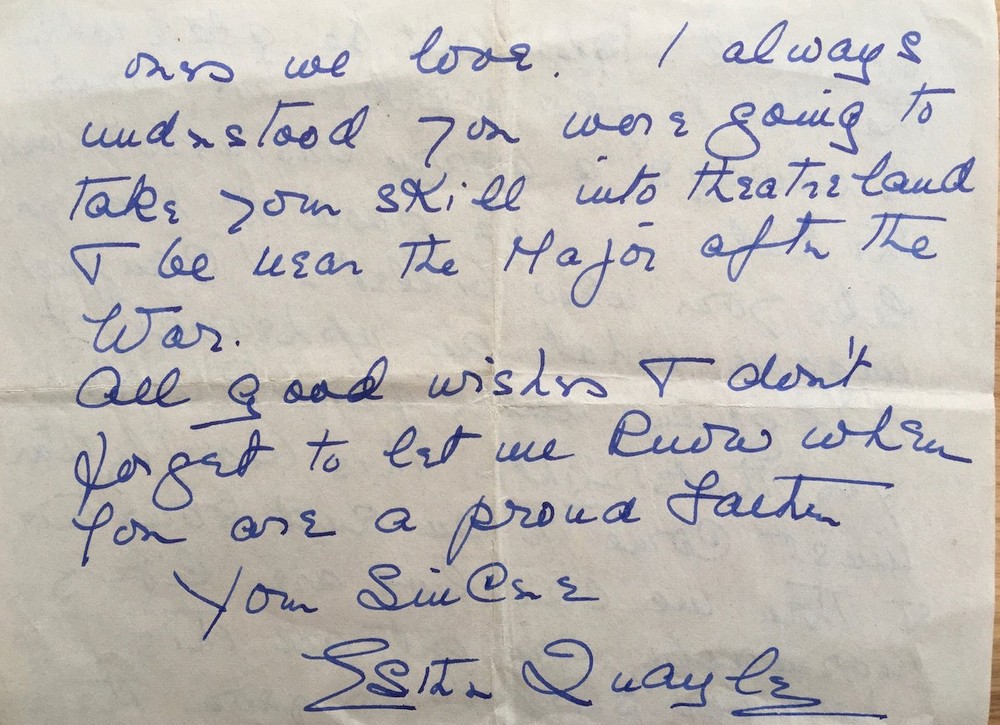 ones we love. I always
understood you were going to
take your skill into theatreland
T be near the Major after the
War.
All good wishes T don't
forget to let me know when
you are a proud Father
Your Sincere
Esther Quayle